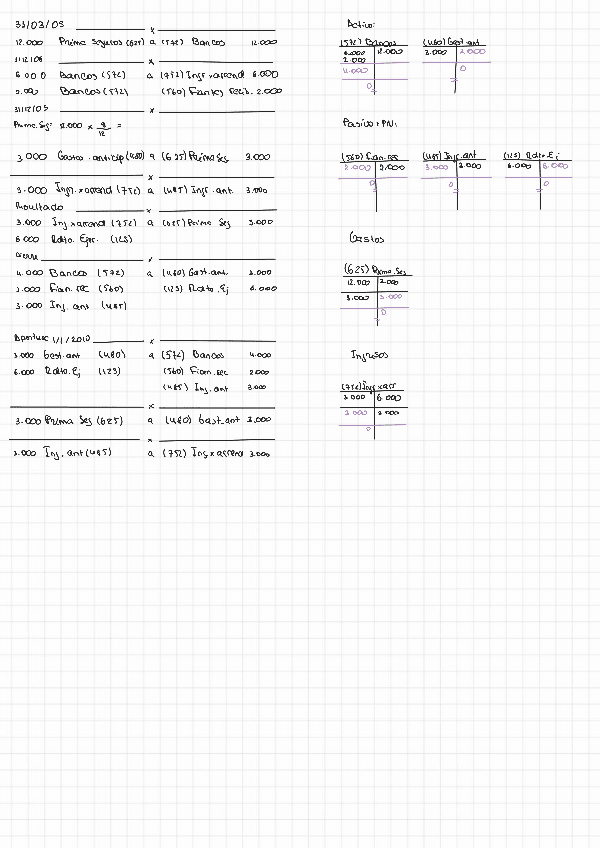 31/03/09
12.000 Prima Seguros (625) a (572) Bancos 12.000
6.000 Bancos (572) a (752) Ingr x arrend 6.000
2.000 Bancos (572) (560) Fianzas recib. 2.000
31/12/09
Prima Seg: 12.000 x 9/12 =
3.000 Gastos anticip (480) a (625) Prima Seg 3.000
3.000 Ingr. x arrend (752) a (485) Ingr. ant. 3.000
Resultado
3.000 Ing x arrend (752) a (625) Prima Seg
6.000 Rdto. Ejer. (123)
Cierre
4.000 Bancos (572) a (480) Gast. ant. 3.000
2.000 Fian. rec (560) (123) Rdto. Ej 6.000
3.000 Ing. ant (485)
Apertura 1/1/2010
3.000 Gast. ant (480) a (572) Bancos 4.000
6.000 Rdto. Ej (123) (560) Fian. rec 2.000
(485) Ing. ant 3.000
3.000 Prima Seg (625) a (480) Gast. ant 3.000
3.000 Ing. ant (485) a (752) Ing x arrend 3.000
Activo:
(572) Bancos (480) Gast. ant
6.000 12.000 3.000 3.000
2.000
4.000 0
0
Pasivo + PN:
(560) Fian. rec (485) Ingr. ant (123) Rdto. Ej
2.000 2.000 3.000 3.000 6.000 6.000
0 0 0
Gastos
(625) Prima. Seg
12.000 3.000
0
Ingresos
(752) Ing x arr
3.000 6.000
3.000 3.000
0